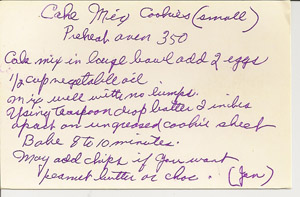 Cake Mix Cookies (small)
Preheat oven 350
Cake mix in large bowl add 2 eggs
1/2 cup vegetable oil
Mix well with no lumps.
Using teaspoon drop batter 2 inches
apart on ungreased cookie sheet
Bake 8 to 10 minutes.
May add chips if you want
peanut butter or choc. (Jan)